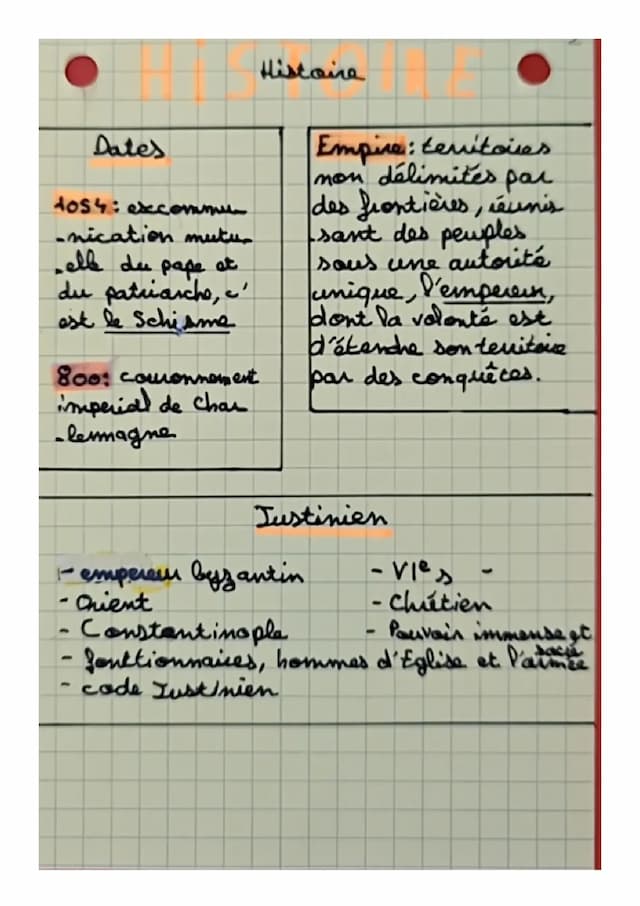 HISTOIRE
Histoire
Dates
1054 : excommu
-nication mutu
-elle du pape et
du patriarche, c'
est le Schisme
800 : couronnement
impérial de Char
-lemagne
Empire : territoires
non délimités par
des frontières, réunis
-sant des peuples
sous une autorité
unique, l'empereur,
dont la volonté est
d'étendre son territoire
par des conquêtes.
Justinien
- empereur byzantin
- Orient
- Constantinople
- VIe s -
- Chrétien
- Pouvoir immense et
sacré
- fonctionnaires, hommes d'Église et l'armée
- code Justinien